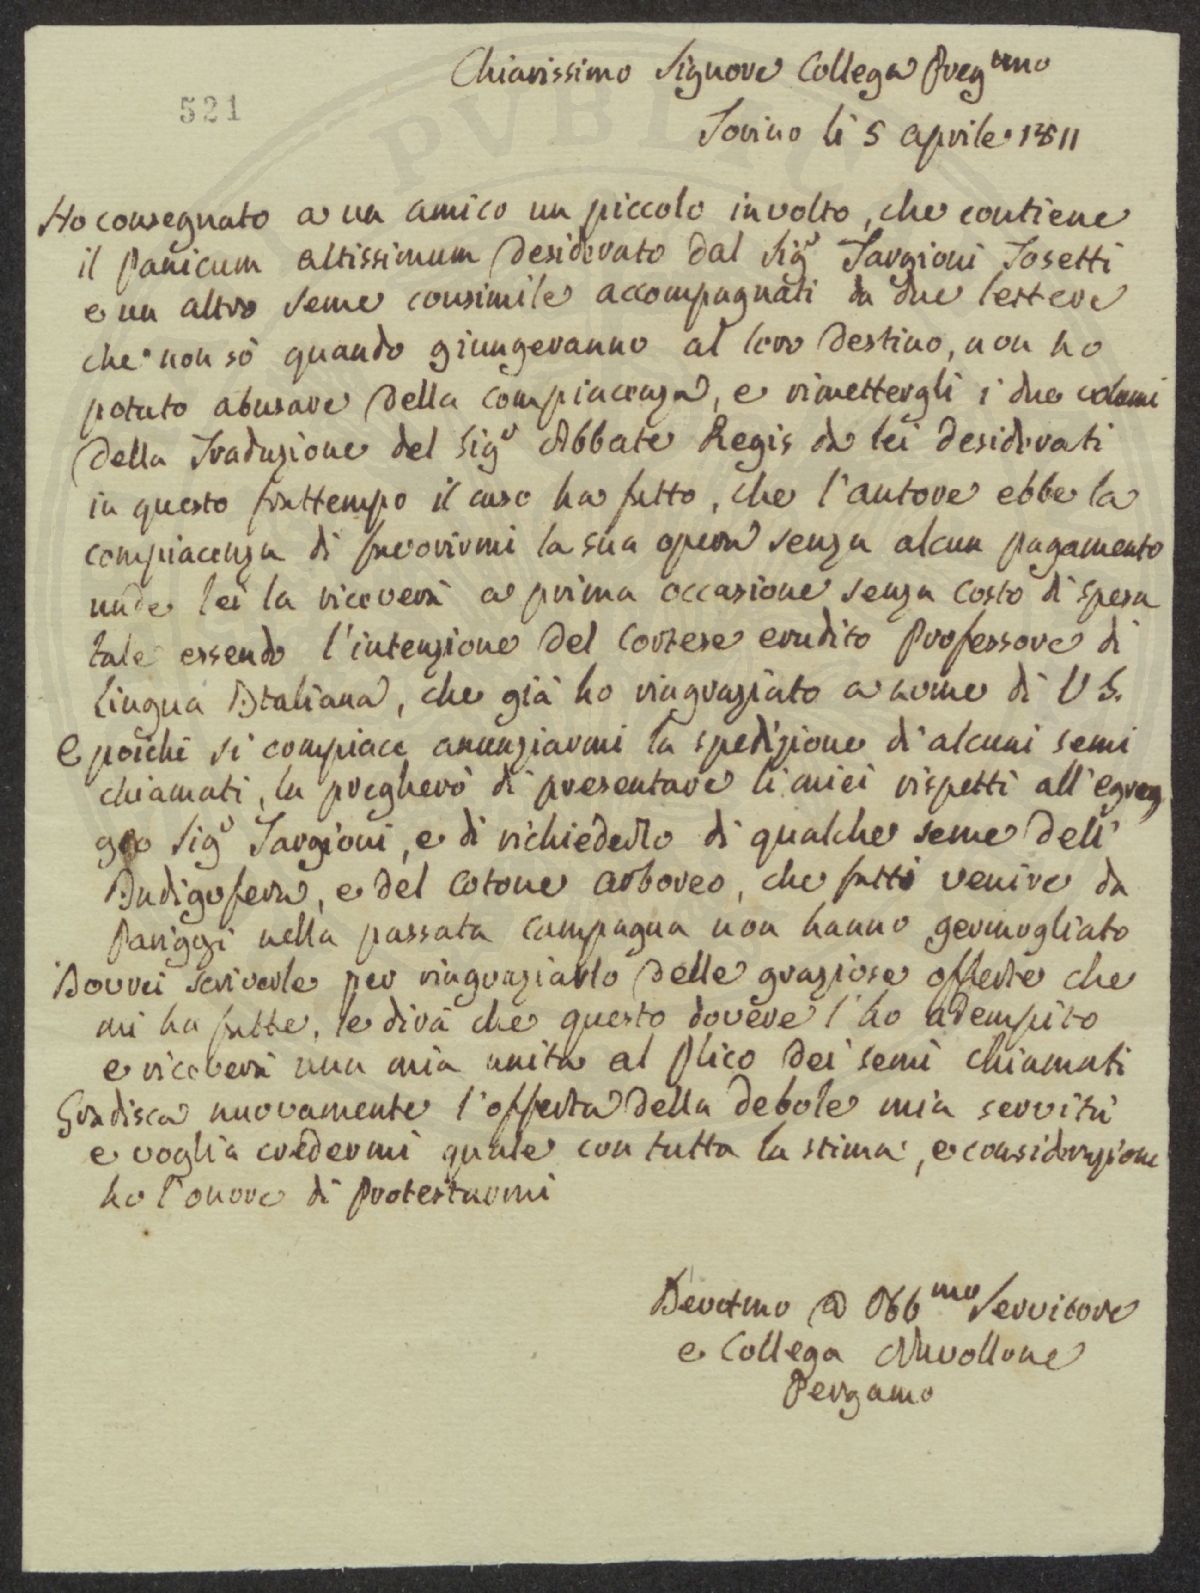 Chiarissimo Signore Collega Preg.mo
521
Torino li 5 aprile 1811
Ho consegnato a un amico un piccolo involto, che contiene
il Panicum altissimum desiderato dal Sig.r Targioni Tosetti
e un altro seme consimile accompagnati da due lettere
che non sò quando giungeranno al loro destino, non ho
potuto abusare della compiacenza, e rimettergli i due volumi
della Traduzione del Sig.r Abbate Regis da lei desiderati
in questo frattempo il caso ha fatto, che l'autore ebbe la
compiacenza di favorirmi la sua opera senza alcun pagamento
unde lei la riceverà a prima occasione senza costo di spesa
tale essendo l'intenzione del cortese erudito Professore di
Lingua Italiana, che già ho ringraziato a nome di V S.
E poichè si compiace anunziarmi la spedizione di alcuni semi
chiamati, la pregherò di presentare li miei rispetti all'egreg
gio Sig.r Targioni, e di richiederlo di qualche seme dell'
Indigofera, e del cotone arboreo, che fatti venire da
Pariggi nella passata campagna non hanno germogliato
Dovrei scriverle per ringraziarlo delle graziose offerte che
mi ha fatte, le dirà che questo dovere l'ho adempito
e riceverà una mia unita al Plico dei semi chiamati
Gradisca nuovamente l'offerta della debole mia servitù
e voglia credermi quale con tutta la stima, e considerazione
ho l'onore di Protestarmi
Devotmo ed Obb.mo Servitore
e Collega Nuvollone
Pergamo
PVBLIC